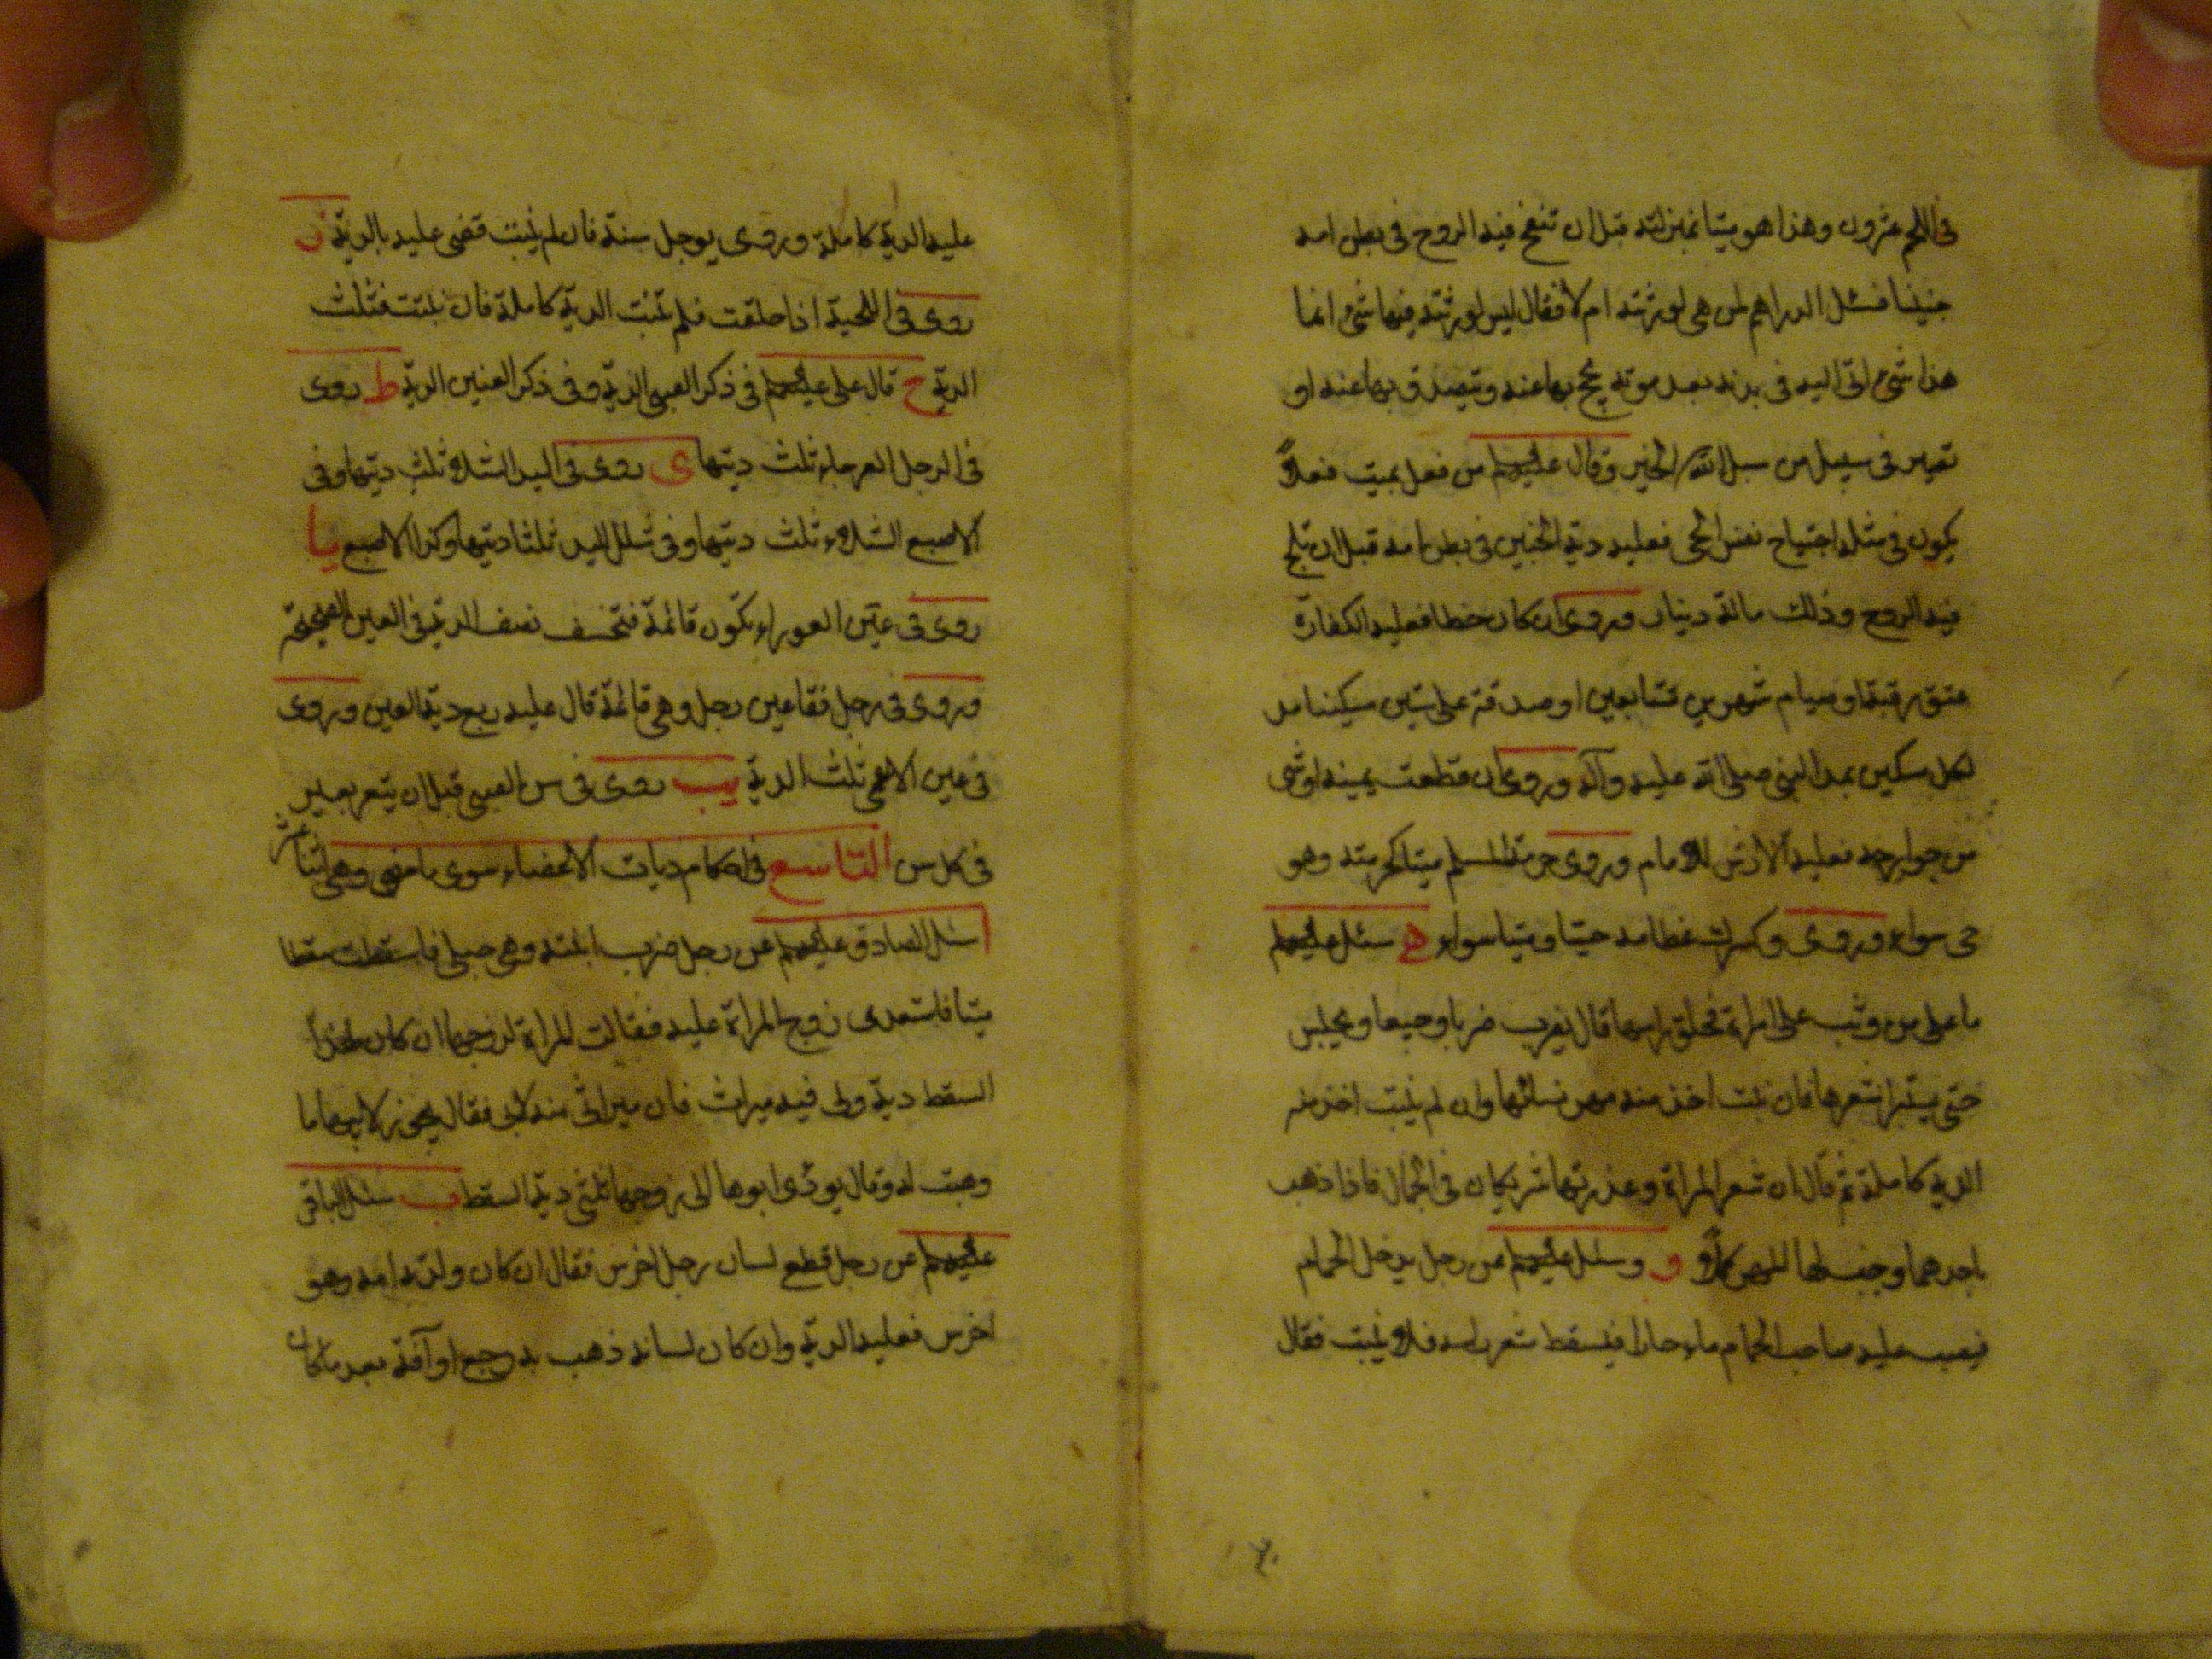 في اللحم عشرون وهذا هو ميتا بمنزلته قبل ان تنفخ فيه الروح في بطن امه
جنينا فسئل الدراهم لمن هي لورثته ام لا فقال ليس لورثته فيها شئ وانما
هذا شئ اتى اليه في بدنه بعد موته يحج بها عنه ويتصدق بها عنه او
تصير في سبيل من سبل الله الخير وقال عليه السلم من فعل بميت فعلاً
يكون في مثله اجتياح نفس الحي فعليه دية الجنين في بطن امه قبل ان تلج
فيه الروح وذلك مائة دينار وروى ان كان خطا فعليه الكفارة
عتق رقبة او صيام شهرين متتابعين او صدقة على ستين مسكينا مد
لكل مسكين بمد النبي صلى الله عليه وآله وروى ان قطعت يمينه او شئ
من جوارحه فعليه الارش للامام وروى حرمة المسلم ميتا كحرمته وهو
حى سواء وروى وكسرك عظامه حيتا وميتا سواء ه سئل عليه السلم
ما على من وثب على امراة فحلق راسها قال يضرب ضربا وجيعا ويحبس
حتى يستبرا شعرها فان نبت اخذ منه مهر نسائها وان لم ينبت اخذ منه
الدية كاملة ثم قال ان شعر المراة وعذرتها شريكان في الجمال فاذا ذهب
باحدهما وجب لها المهر كملاً و وسئل عليه السلم عن رجل يدخل الحمام
فيصب عليه صاحب الحمام ماء حارا فيسقط شعر راسه فلا ينبت فقال
عليه الدية كاملة وروى يوجل سنة فان لم ينبت قضى عليه بالدية ز
روى في اللحية اذا حلقت فلم تنبت الدية كاملة فان نبتت فثلث
الدية ح قال على عليه السلم في ذكر الصبى الدية وفي ذكر العنين الدية ط روى
في الرجل العرجاء ثلث ديتها ى روى في اليد الشلاء ثلث ديتها وفي
الاصبع الشلاء ثلث ديتها وفي شلل اليد ثلثا ديتها وكذا الاصبع يا
روى في عين العوراء تكون قائمة فتخسف نصف الدية في العين الصحيحة
وروى في رجل فقا عين رجل وهي قائمة قال عليه ربع دية العين وروى
في عين الاعمى ثلث الدية يب روى في سن الصبى قبل ان يثغر بعير
في كل سن التاسع في احكام ديات الاعضاء سوى ما مضى وهي اثنا عشر
ا سئل الصادق عليه السلم عن رجل ضرب ابنته وهي حبلى فاسقطت سقطا
ميتا فاستعدى زوج المراة عليه فقالت المراة لزوجها ان كان لهذا
السقط دية ولى فيه ميراث فان ميراثى منه لابى فقال يجوز لابيها ما
وهبت له وقال يودى ابوها الى زوجها ثلثى دية السقط ب سئل الباقر
عليه السلم عن رجل قطع لسان رجل اخرس فقال ان كان ولدته امه وهو
اخرس فعليه الدية وان كان لسانه ذهب به وجع او آفة بعد ما كان